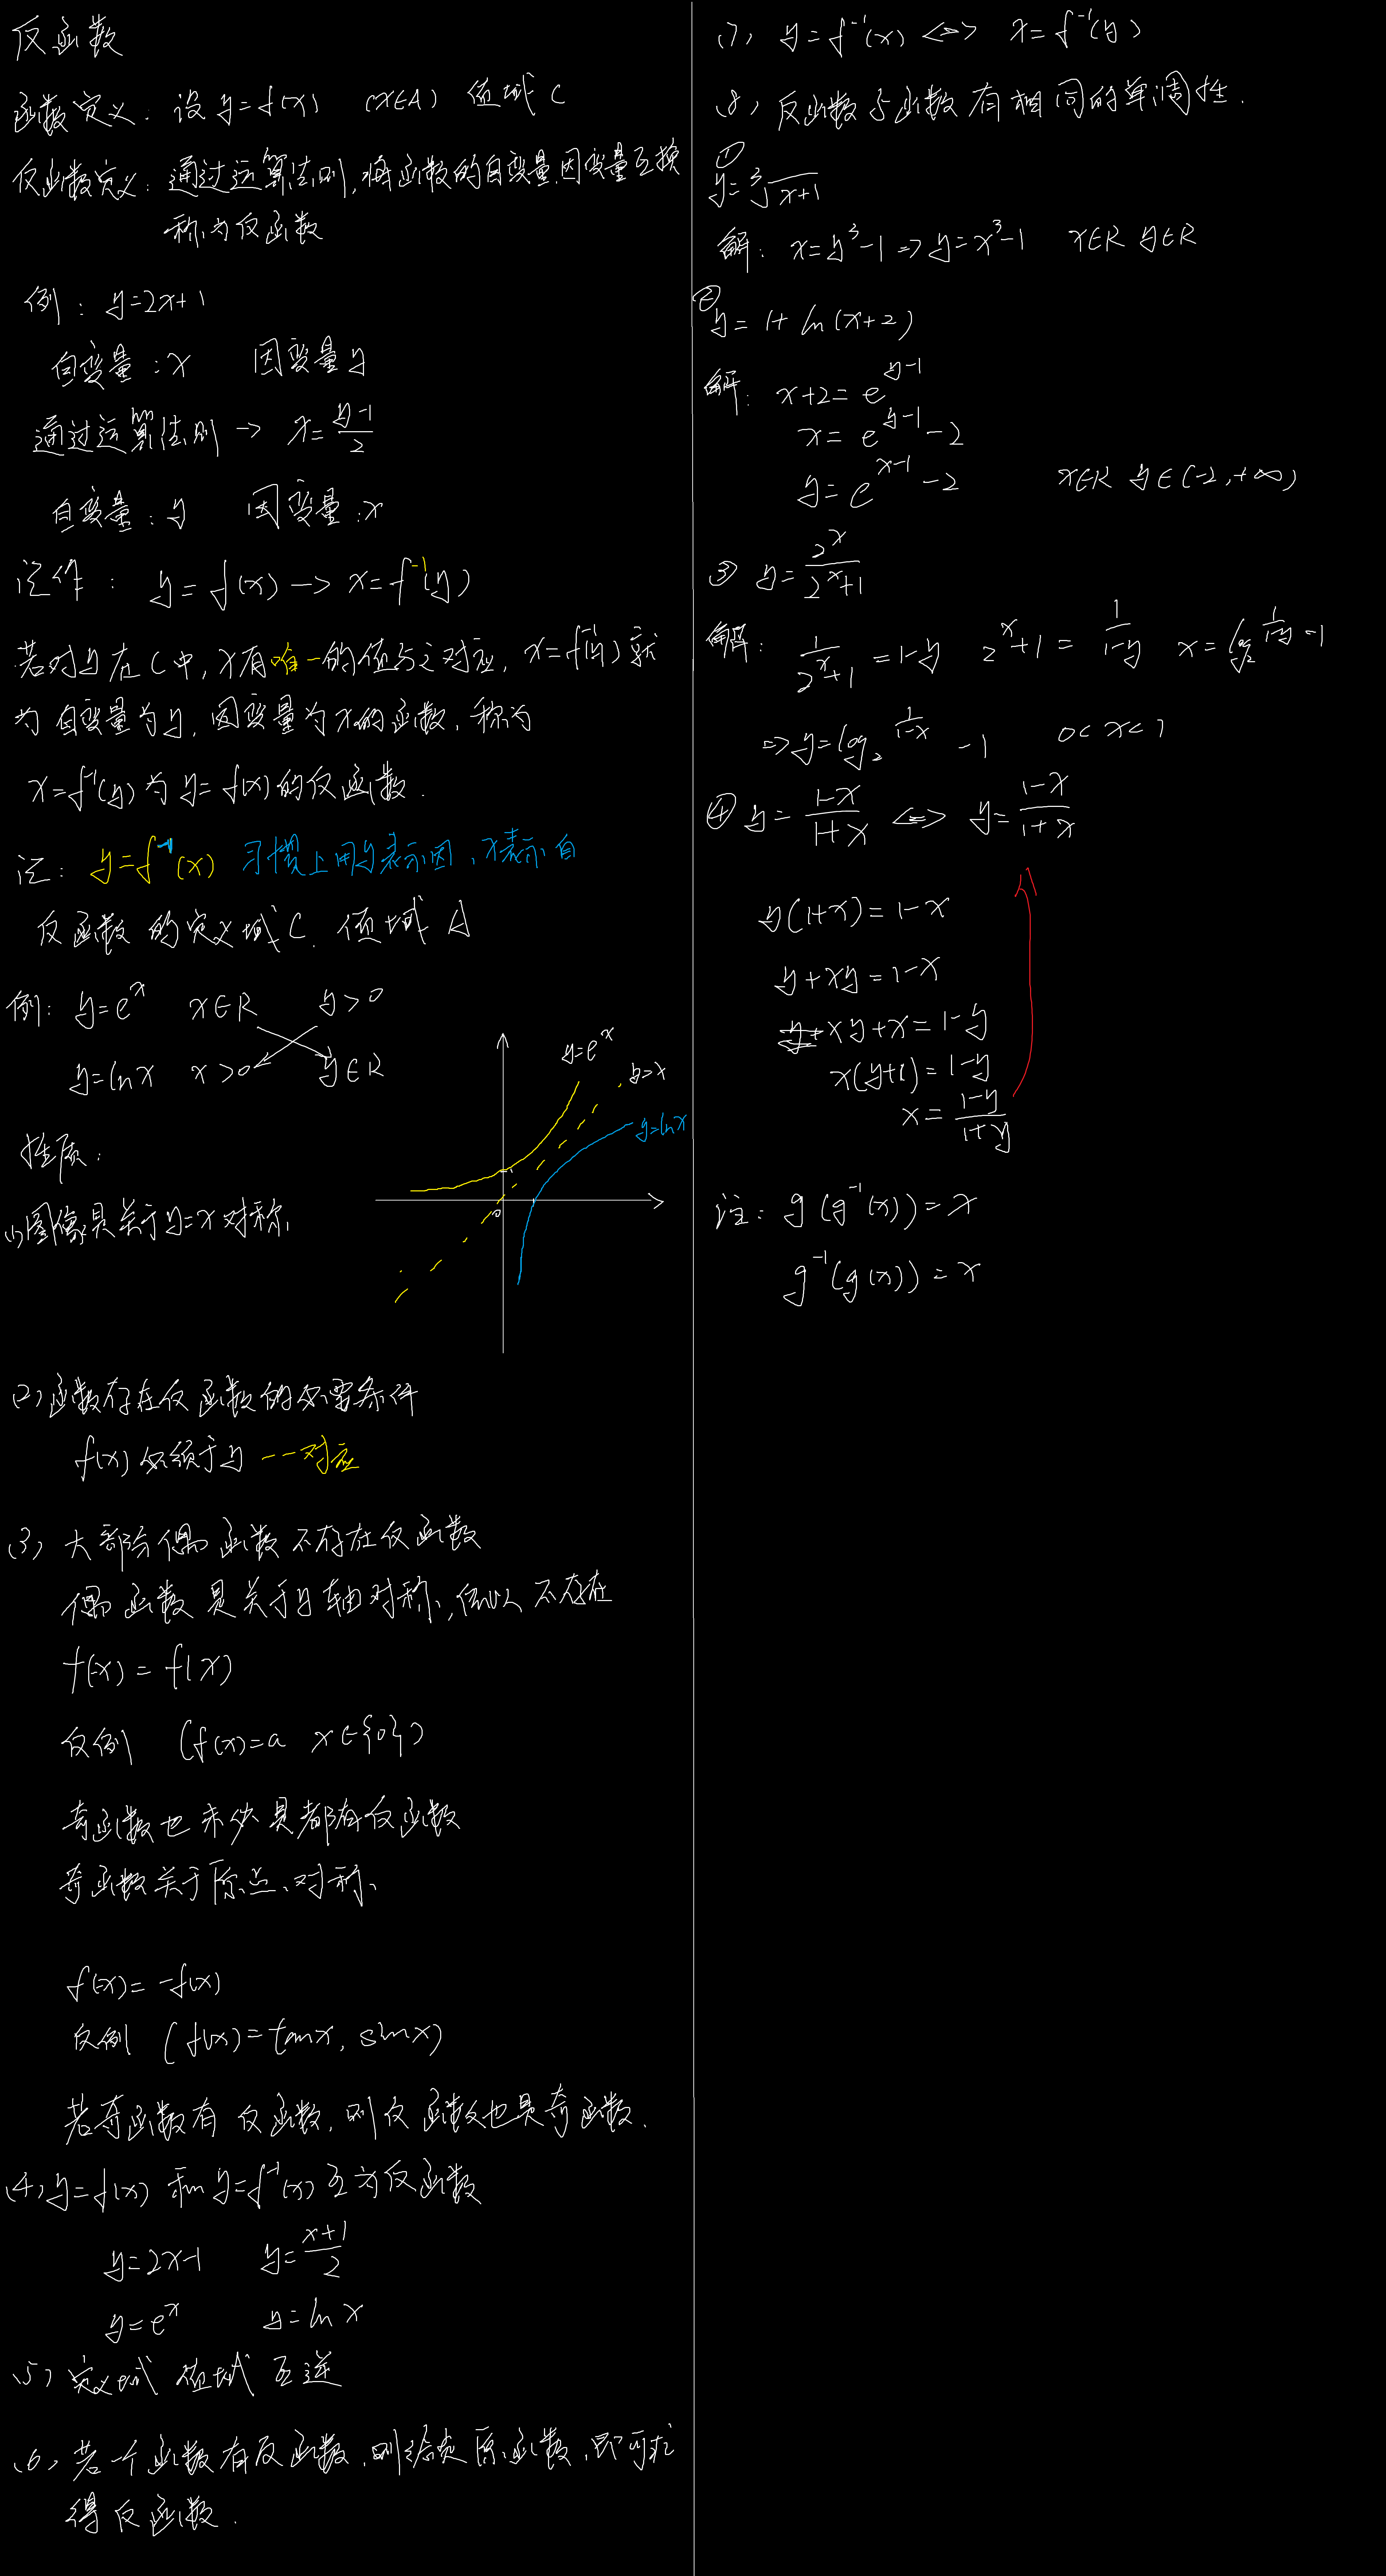 反函数
函数定义：设 y=f(x) (x∈A) 值域 C
反函数定义：通过运算法则,将函数的自变量.因变量互换
称为反函数
例：y=2x+1
自变量：x 因变量 y
通过运算法则 → x=(y-1)/2
自变量：y 因变量：x
记作：y=f(x) → x=f⁻¹(y)
若对 y 在 C 中, x 有唯一的值与之对应, x=f⁻¹(y) 就
为自变量为 y, 因变量为 x 的函数, 称为
x=f⁻¹(y) 为 y=f(x) 的反函数.
注：y=f⁻¹(x) 习惯上用 y 表示因, x 表示自
反函数的定义域 C. 值域 A
例：y=eˣ x∈R y>0
y=lnx x>0 y∈R
y=eˣ
y=x
y=lnx
0
性质：
(1) 图像是关于 y=x 对称
(2) 函数存在反函数的必要条件
f(x) 必须于 y 一一对应
(3) 大部分偶函数不存在反函数
偶函数是关于 y 轴对称, 所以不存在
f(-x) = f(x)
反例 (f(x)=a x∈{0})
奇函数也未必是都有反函数
奇函数关于原点对称
f(-x) = -f(x)
反例 (f(x)=tanx, sinx)
若奇函数有反函数, 则反函数也是奇函数.
(4) y=f(x) 和 y=f⁻¹(x) 互为反函数
y=2x-1 y=(x+1)/2
y=eˣ y=lnx
(5) 定义域 值域 互逆
(6) 若一个函数有反函数, 则给定原函数, 即可求
得反函数.
(7) y=f⁻¹(x) <=> x=f⁻¹(y)
(8) 反函数与函数有相同的单调性.
①
y=³√(x+1)
解：x=y³-1 => y=x³-1 x∈R y∈R
②
y=1+ln(x+2)
解：x+2=e^(y-1)
x=e^(y-1)-2
y=e^(x-1)-2 x∈R y∈(-2,+∞)
③ y=2ˣ/(2ˣ+1)
解：1/(2ˣ+1)=1-y 2ˣ+1=1/(1-y) x=log₂^(1/(1-y)-1)
=> y=log₂^(1/(1-x)) -1 0<x<1
④ y=(1-x)/(1+x) <=> y=(1-x)/(1+x)
y(1+x)=1-x
y+xy=1-x
xy+x=1-y
x(y+1)=1-y
x=(1-y)/(1+y)
注：g(g⁻¹(x))=x
g⁻¹(g(x))=x